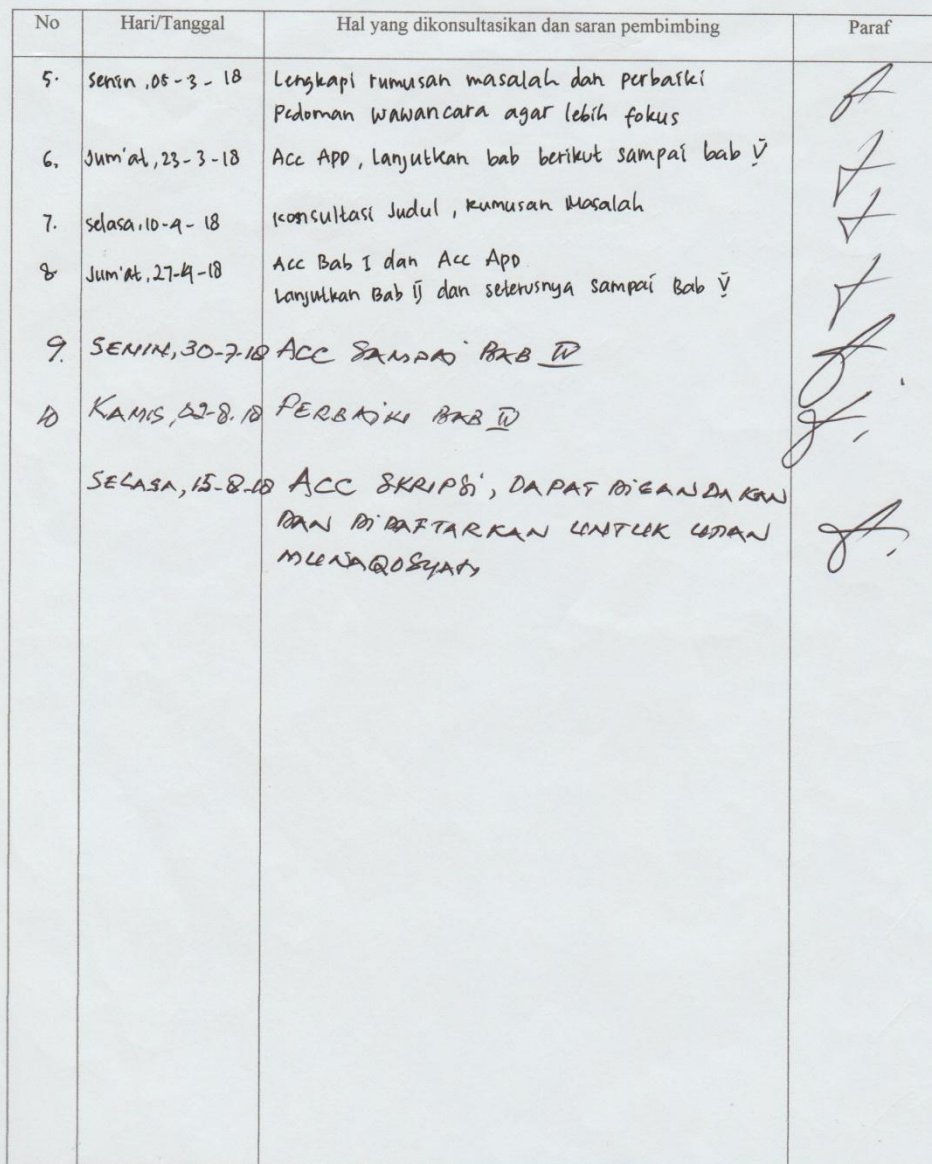 No Hari/Tanggal Hal yang dikonsultasikan dan saran pembimbing Paraf
5. Senin, 05-3-18 Lengkapi rumusan masalah dan perbaiki
Pedoman wawancara agar lebih fokus
6. Jum'at, 23-3-18 Acc APD, Lanjutkan bab berikut sampai bab V
7. Selasa, 10-4-18 Konsultasi Judul, Rumusan Masalah
8 Jum'at, 27-4-18 Acc Bab I dan Acc Apd
Lanjutkan Bab II dan seterusnya sampai Bab V
9. SENIN, 30-7-18 ACC SAMPAI BAB IV
10 KAMIS, 02-8-18 PERBAIKI BAB IV
SELASA, 15-8-18 ACC SKRIPSI, DAPAT DIGANDAKAN
DAN DIDAFTARKAN UNTUK UJIAN
MUNAQOSYAH